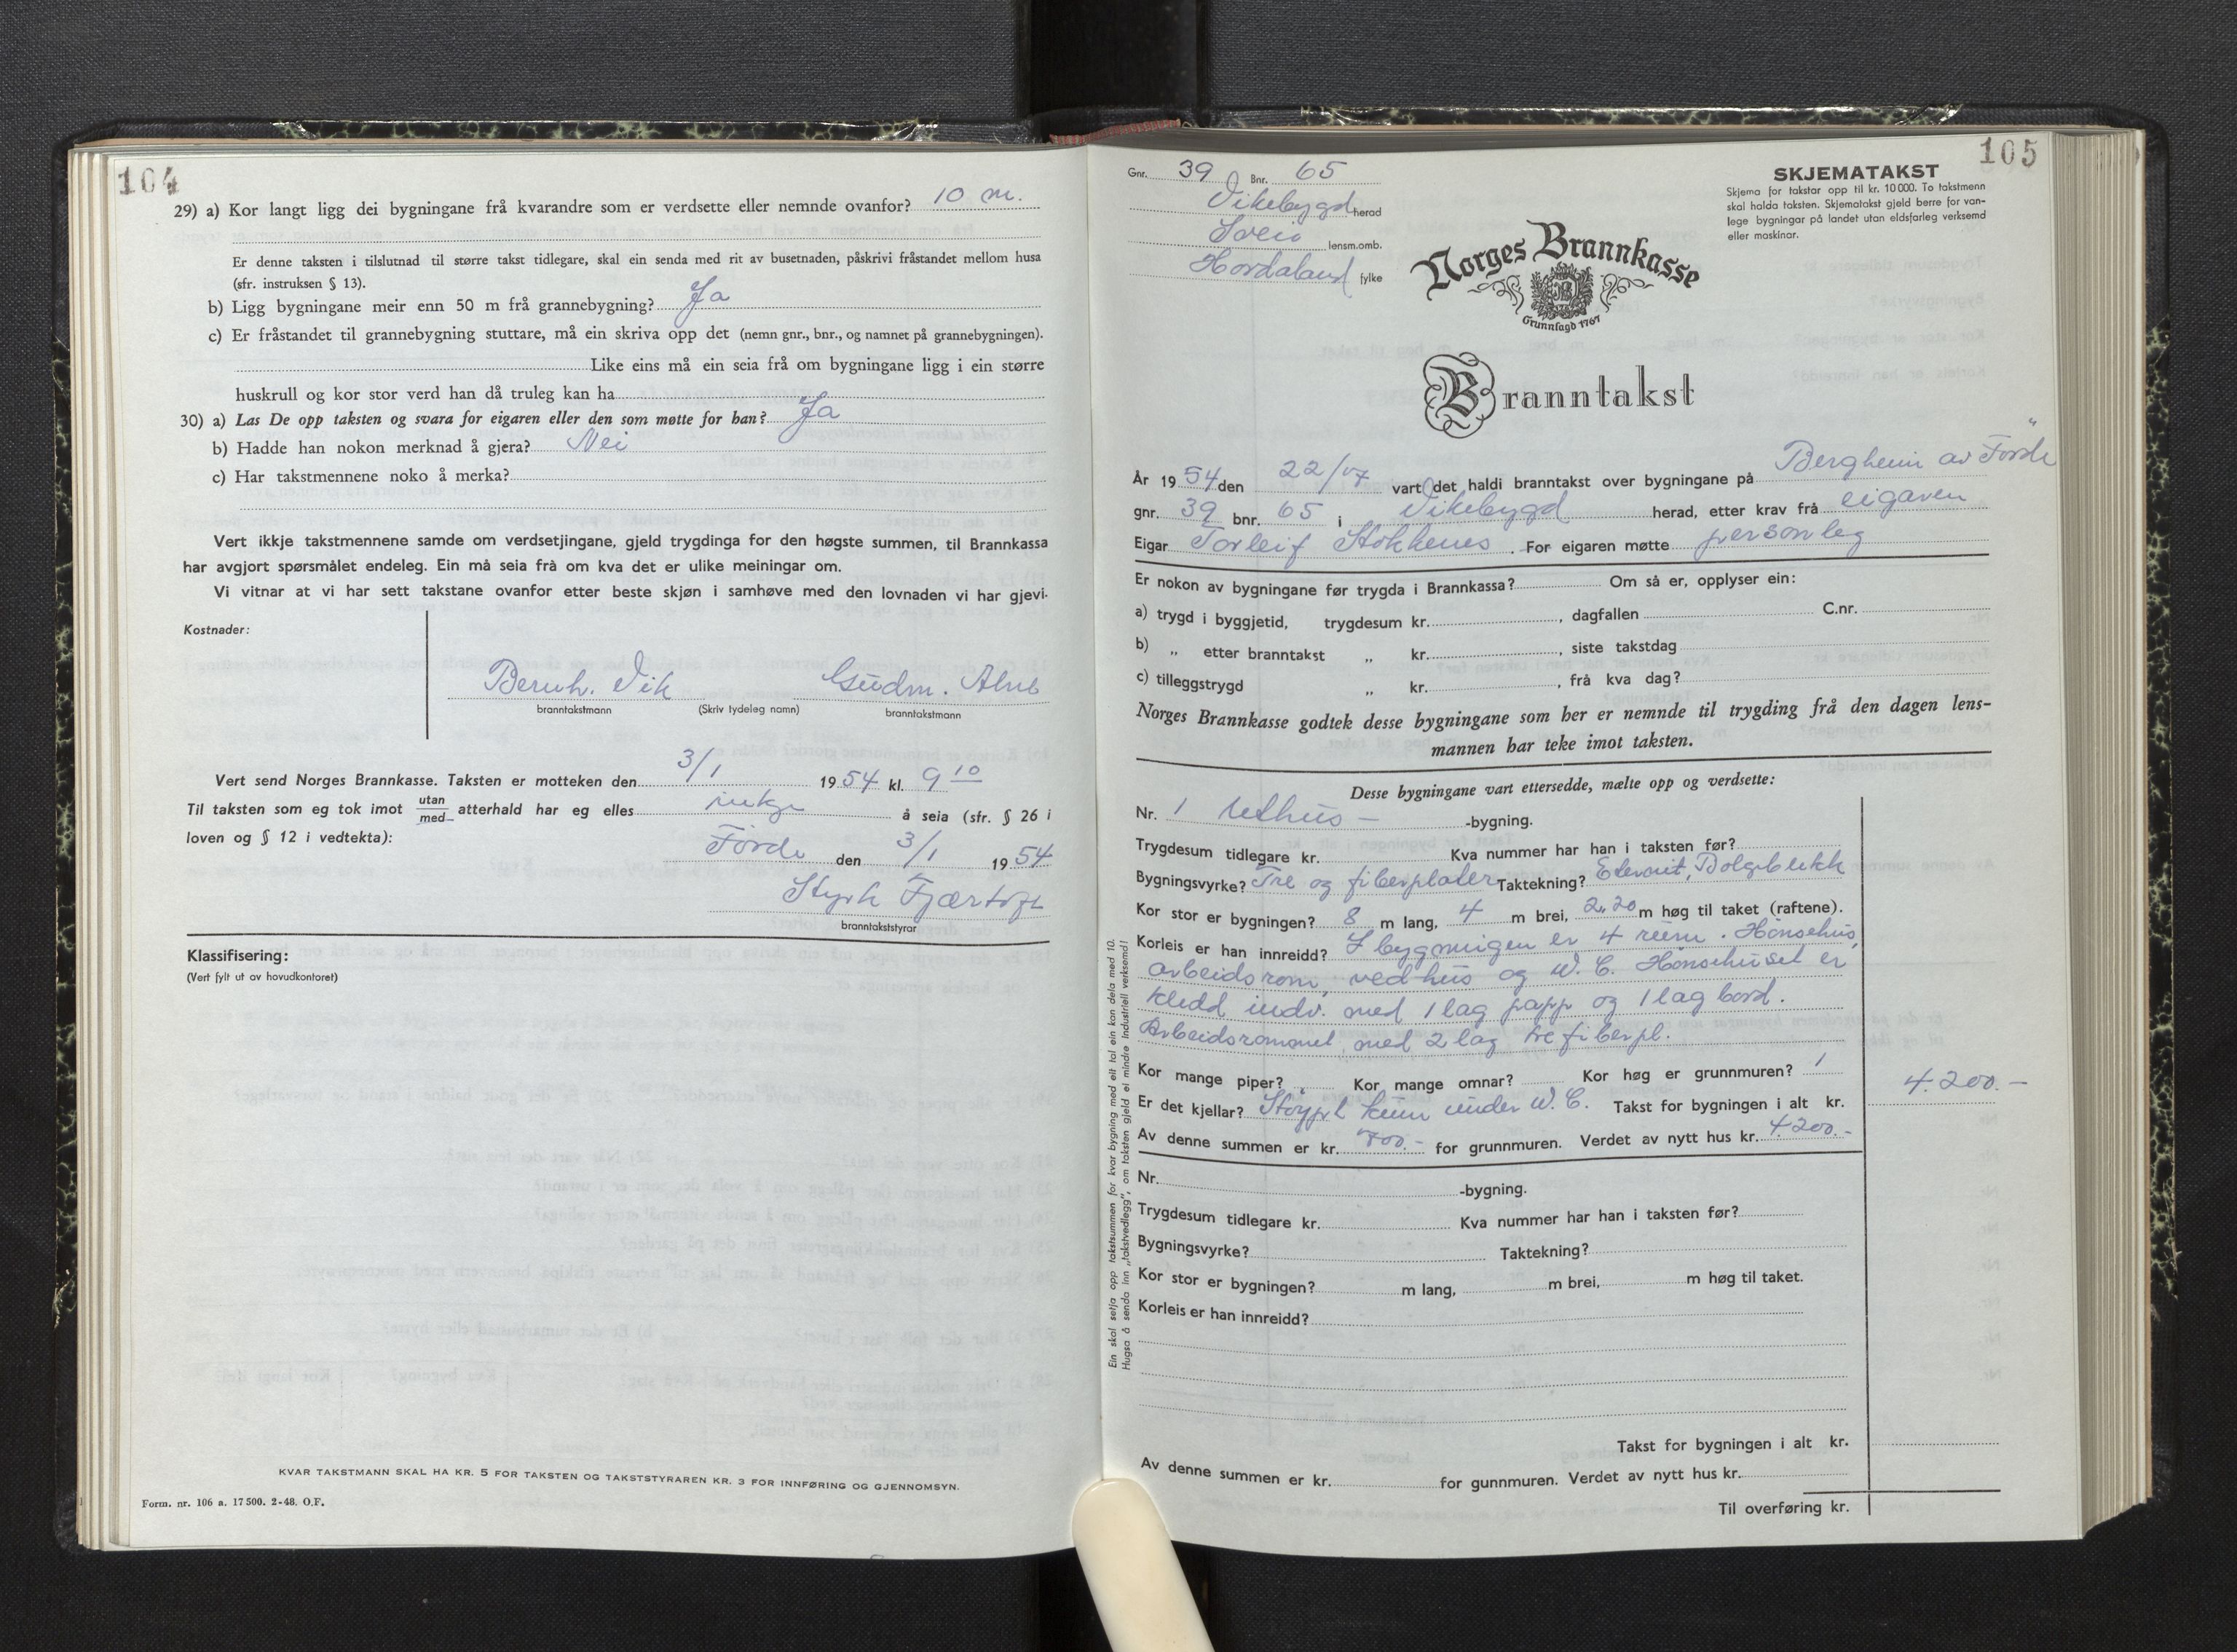 104
29) a) Kor langt ligg dei bygningane frå kvarandre som er verdsette eller nemnde ovanfor? 10 m.
Er denne taksten i tilslutnad til større takst tidlegare, skal ein senda med rit av busetnaden, påskrivi fråstandet mellom husa
(sfr. instruksen § 13).
b) Ligg bygningane meir enn 50 m frå grannebygning? Ja
c) Er fråstandet til grannebygning stuttare, må ein skriva opp det (nemn gnr., bnr., og namnet på grannebygningen).
Like eins må ein seia frå om bygningane ligg i ein større
huskrull og kor stor verd han då truleg kan ha
30) a) Las De opp taksten og svara for eigaren eller den som møtte for han? Ja
b) Hadde han nokon merknad å gjera? Nei
c) Har takstmennene noko å merka?
Vert ikkje takstmennene samde om verdsetjingane, gjeld trygdinga for den høgste summen, til Brannkassa
har avgjort spørsmålet endeleg. Ein må seia frå om kva det er ulike meiningar om.
Vi vitnar at vi har sett takstane ovanfor etter beste skjøn i samhøve med den lovnaden vi har gjevi.
Kostnader:
Bernh. Vik Gudm.
branntakstmann (Skriv tydeleg namn) branntakstmann
Vert send Norges Brannkasse. Taksten er motteken den 3/1 1954 kl. 9 10
Til taksten som eg tok imot utan/med atterhald har eg elles inkje å seia (sfr. § 26 i
loven og § 12 i vedtekta):
Förde den 3/1 1954
Styrk Fjærtoft
branntakststyrar
Klassifisering:
(Vert fylt ut av hovudkontoret)
KVAR TAKSTMANN SKAL HA KR. 5 FOR TAKSTEN OG TAKSTSTYRAREN KR. 3 FOR INNFØRING OG GJENNOMSYN.
Form. nr. 106 a. 17 500. 2-48. O.F.
105
Gnr. 39 Bnr. 65
Vikebygd herad
Sveio lensm.omb.
Hordaland fylke
SKJEMATAKST
Skjema for takstar opp til kr. 10 000. To takstmenn
skal halda taksten. Skjematakst gjeld berre for van-
lege bygningar på landet utan eldsfarleg verksemd
eller maskinar.
Norges Brannkasse
Grunnlagd 1767
Branntakst
År 1954 den 22/ vart det haldi branntakst over bygningane på Bergheim av Förde
gnr. 39 bnr. 65 i Vikebygd herad, etter krav frå eigaren
Eigar Torleif Stokkenes. For eigaren møtte personleg
Er nokon av bygningane før trygda i Brannkassa? Om så er, opplyser ein:
a) trygd i byggjetid, trygdesum kr. , dagfallen C.nr.
b) „ etter branntakst „ kr. , siste takstdag
c) tilleggstrygd „ kr. , frå kva dag?
Norges Brannkasse godtek desse bygningane som her er nemnde til trygding frå den dagen lens-
mannen har teke imot taksten.
Desse bygningane vart ettersedde, mælte opp og verdsette:
Nr. 1 Uthus - -bygning.
Trygdesum tidlegare kr. Kva nummer har han i taksten før?
Bygningsvyrke? Tre og fiberplater Taktekning? Eternit, Bølgeblikk
Kor stor er bygningen? 8 m lang, 4 m brei, 2,20 m høg til taket (raftene).
Korleis er han innreidd? I bygningen er 4 rum. Hönsehus,
arbeidsrom, vedhus og W.C. Hönsehuset er
kledd indv. med 1 lag papp og 1 lag bord.
Arbeidsrommet med 2 lag tre fiberpl.
Kor mange piper? Kor mange omnar? Kor høg er grunnmuren? 1
Er det kjellar? Stöypt kum under W.C. Takst for bygningen i alt kr. 4.200.-
Av denne summen er kr. 700.- for grunnmuren. Verdet av nytt hus kr. 4200.-
Nr. -bygning.
Trygdesum tidlegare kr. Kva nummer har han i taksten før?
Bygningsvyrke? Taktekning?
Kor stor er bygningen? m lang, m brei, m høg til taket.
Korleis er han innreidd?
Takst for bygningen i alt kr.
Av denne summen er kr. for gunnmuren. Verdet av nytt hus kr.
Til overføring kr.
Ein skal setja opp takstsummen for kvar bygning med eit tal ein kan dela med 10.
Hugsa å senda inn „takstvedlegg", om taksten gjeld ei mindre Industriell verksemd!